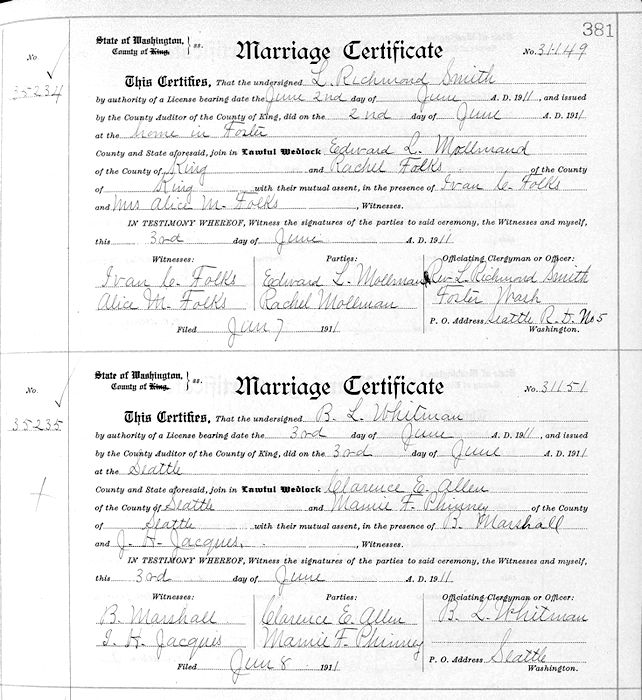 381
State of Washington, County of King. } ss. Marriage Certificate No. 31149
No.
35234
This Certifies, That the undersigned L. Richmond Smith
by authority of a License bearing date the June 2nd day of June A. D. 1911, and issued
by the County Auditor of the County of King, did on the 2nd day of June A. D. 1911
at the home in Foster
County and State aforesaid, join in Lawful Wedlock Edward L. Mollmand
of the County of King and Rachel Folks of the County
of King with their mutual assent, in the presence of Ivan C. Folks
and Mrs Alice M. Folks, Witnesses.
IN TESTIMONY WHEREOF, Witness the signatures of the parties to said ceremony, the Witnesses and myself,
this 3rd day of June A. D. 1911.
Witnesses: Parties: Officiating Clergyman or Officer:
Ivan C. Folks Edward L. Mollman Rev. L. Richmond Smith
Alice M. Folks Rachel Mollman Foster Wash
Filed Jun 7 1911 P. O. Address, Seattle R. D. No 5
Washington.
State of Washington, County of King. } ss. Marriage Certificate No. 31151
No.
35235
This Certifies, That the undersigned B. L. Whitman
by authority of a License bearing date the 3rd day of June A. D. 1911, and issued
by the County Auditor of the County of King, did on the 3rd day of June A. D. 1911
at the Seattle
County and State aforesaid, join in Lawful Wedlock Clarence E. Allen
of the County of Seattle and Mamie F. Phinney of the County
of Seattle with their mutual assent, in the presence of B. Marshall
and J. H. Jacques, Witnesses.
IN TESTIMONY WHEREOF, Witness the signatures of the parties to said ceremony, the Witnesses and myself,
this 3rd day of June A. D. 1911.
Witnesses: Parties: Officiating Clergyman or Officer:
B. Marshall Clarence E. Allen B. L. Whitman
J. H. Jacques Mamie F. Phinney
Filed Jun 8 1911 P. O. Address, Seattle
Washington.